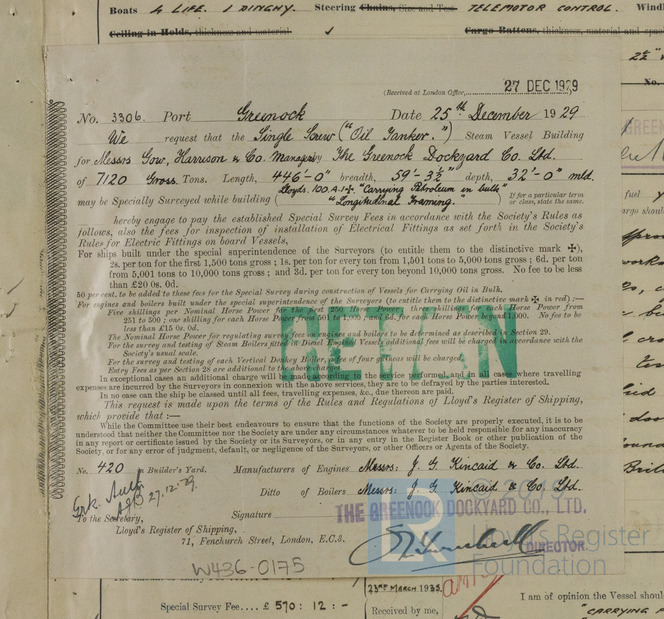 Boats 4 LIFE. 1 DINGHY. Steering Chains, Size and Test TELEMOTOR CONTROL. Windl
Ceiling in Holds, thickness and material Cargo Battens, thickness, material and spa
(Received at London Office, 27 DEC 1929
No. 3306. Port Greenock Date 25th December 1929
We request that the Single Screw ("Oil Tanker.") Steam Vessel Building
for Messrs Gow, Harrison & Co. Managers by The Greenock Dockyard Co. Ltd.
of 7120 Gross Tons. Length, 446'-0" breadth, 59'-3½" depth, 32'-0" mld.
Lloyds. 100.A.1.✠. "Carrying Petroleum in bulk"
may be Specially Surveyed while building ( "Longitudinal Framing." ) If for a particular term or class, state the same.
hereby engage to pay the established Special Survey Fees in accordance with the Society's Rules as
follows, also the fees for inspection of installation of Electrical Fittings as set forth in the Society's
Rules for Electric Fittings on board Vessels,
For ships built under the special superintendence of the Surveyors (to entitle them to the distinctive mark ✠),
2s. per ton for the first 1,500 tons gross; 1s. per ton for every ton from 1,501 tons to 5,000 tons gross; 6d. per ton
from 5,001 tons to 10,000 tons gross; and 3d. per ton for every ton beyond 10,000 tons gross. No fee to be less
than £20 0s. 0d.
50 per cent. to be added to these fees for the Special Survey during construction of Vessels for Carrying Oil in Bulk.
For engines and boilers built under the special superintendence of the Surveyors (to entitle them to the distinctive mark ✠ in red) :—
Five shillings per Nominal Horse Power for 250 Horse Power; three shillings for each Horse Power from
251 to 500; one shilling for each Horse Power from 501 to 1,000; and 6d. for each Horse Power 1,000. No fee to be
less than £15 0s. 0d.
The Nominal Horse Power for regulating survey fees on engines and boilers to be determined as described in Section 29.
For the survey and testing of Steam Boilers Diesel Engined Vessels, additional fees will be charged in accordance with the
Society's usual scale.
For the survey and testing of each Vertical Donkey Boiler of four guineas will be charged.
Entry Fees as per Section 28 are additional to the above.
In exceptional cases an additional charge will be made according to the service performed, and in all cases where travelling
expenses are incurred by the Surveyors in connexion with the above services, they are to be defrayed by the parties interested.
In no case can the ship be classed until all fees, travelling expenses, &c., due thereon are paid.
RETAIN
This request is made upon the terms of the Rules and Regulations of Lloyd's Register of Shipping,
which provide that :—
While the Committee use their best endeavours to ensure that the functions of the Society are properly executed, it is to be
understood that neither the Committee nor the Society are under any circumstances whatever to be held responsible for any inaccuracy
in any report or certificate issued by the Society or its Surveyors, or in any entry in the Register Book or other publication of
the Society, or for any error of judgment, default, or negligence of the Surveyors, or other Officers or Agents of the Society.
No. 420 in Builder's Yard. Manufacturers of Engines Messrs: J. G. Kincaid & Co. Ltd.
Ditto of Boilers Messrs: J. G. Kincaid & Co. Ltd.
27.12.29.
Signature THE GREENOCK DOCKYARD CO., LTD.
To the Secretary,
Lloyd's Register of Shipping,
71, Fenchurch Street, London, E.C.3.
DIRECTOR.
Lloyd's Register
Foundation
W436-0175
23RD MARCH 1933.
Special Survey Fee.... £ 570 : 12 : -
Received by me,
I am of opinion the Vessel shoul
"CARRYING P